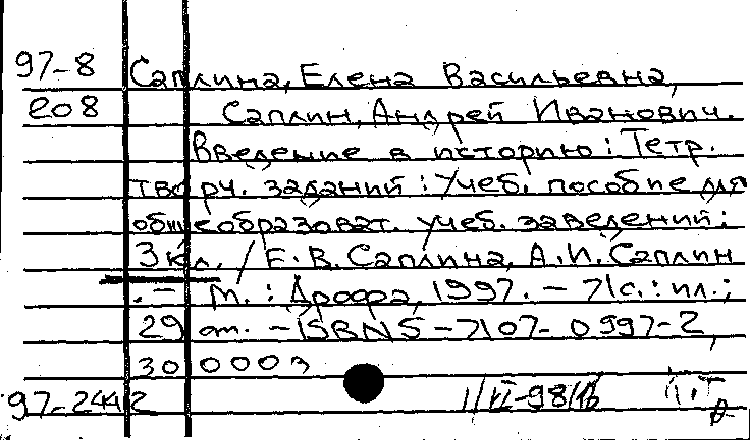 97-8 Саплина, Елена Васильевна,
208 Саплин, Андрей Иванович.
Введение в историю: Тетр.
творч. заданий: Учеб. пособие для
общеобразоват. учеб. заведений:
3 кл. / Е. В. Саплина, А. И. Саплин
. - М.: Дрофа, 1997. - 71с.: ил.;
29 cm. - ISBN5-7107-0997-2,
300000э
97-2442 1/VI-98